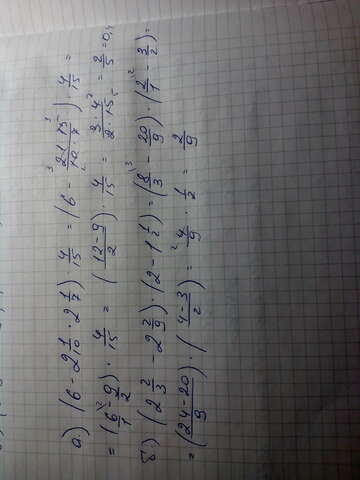 а) (6 - 2 1/10 · 2 1/7) · 4/15 = (6 - 21/10 · 15/7) · 4/15 =
= (6/1 - 9/2) · 4/15 = (12-9/2) · 4/15 = 3·4/2·15 = 2/5 = 0,4
б) (2 2/3 - 2 2/9) · (2 - 1 1/2) = (8/3 - 20/9) · (2/1 - 3/2) =
= (24-20/9) · (4-3/2) = 4/9 · 1/2 = 2/9